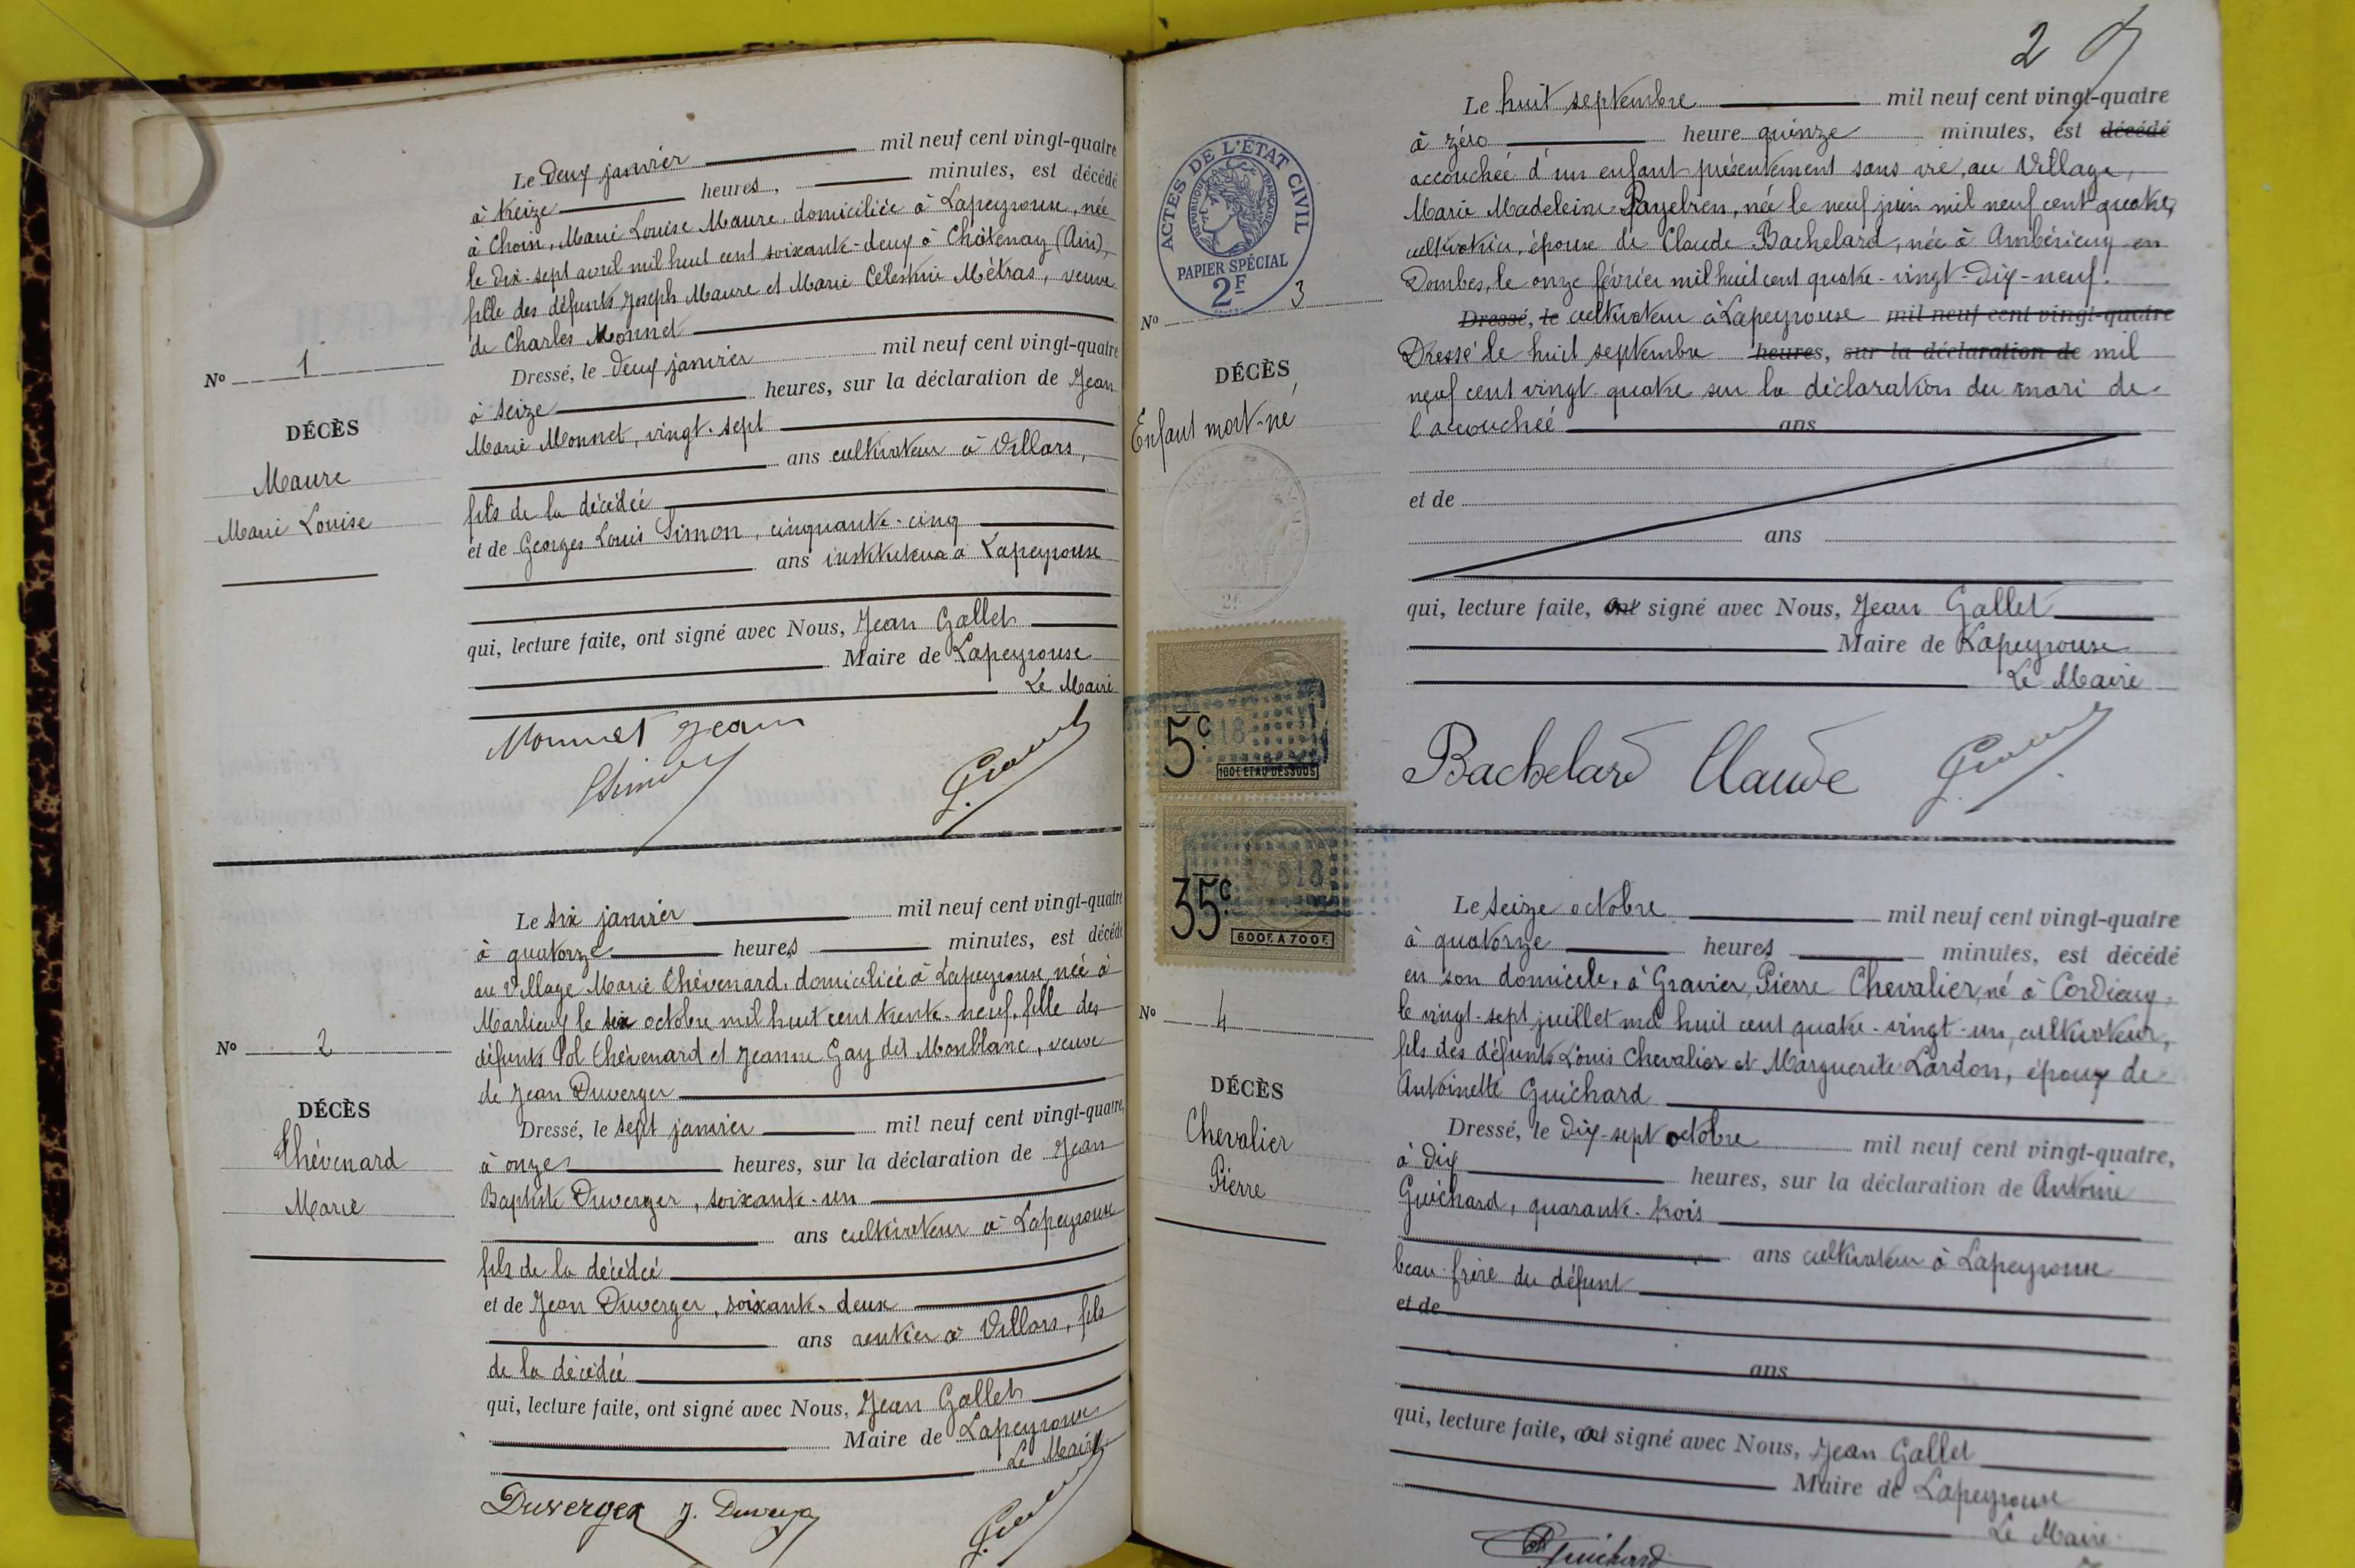 Le deux janvier mil neuf cent vingt-quatre
à treize heures, minutes, est décédé
à Choin, Marie Louise Maure, domiciliée à Lapeyrouse, née
le dix-sept avril mil huit cent soixante-deux à Châtenay (Ain),
fille des défunts Joseph Maure et Marie Célestine Métras, veuve
de Charles Monnet
Nº 1
DÉCÈS
Maure
Marie Louise
Dressé, le deux janvier mil neuf cent vingt-quatre
à seize heures, sur la déclaration de Jean
Marie Monnet, vingt-sept
ans cultivateur à Villars,
fils de la décédée
et de Georges Louis Simon, cinquante-cinq
ans instituteur à Lapeyrouse
qui, lecture faite, ont signé avec Nous, Jean Gallet
Maire de Lapeyrouse
Le Maire
Monnet Jean
Simon
Le six janvier mil neuf cent vingt-quatre
à quatorze heures minutes, est décédé
au Village Marie Chévenard, domiciliée à Lapeyrouse, née à
Marlieux le six octobre mil huit cent trente-neuf, fille des
défunts Pol Chévenard et Jeanne Gay dit Monblanc, veuve
de Jean Duverger
Nº 2
DÉCÈS
Chévenard
Marie
Dressé, le sept janvier mil neuf cent vingt-quatre,
à onze heures, sur la déclaration de Jean
Baptiste Duverger, soixante-un
ans cultivateur à Lapeyrouse
fils de la décédée
et de Jean Duverger, soixante-deux
ans rentier à Villars, fils
de la décédée
qui, lecture faite, ont signé avec Nous, Jean Gallet
Maire de Lapeyrouse
Le Maire
Duverger J. Duverger
2
ACTES DE L'ÉTAT CIVIL
RÉPUBLIQUE FRANÇAISE
PAPIER SPÉCIAL
2F
Nº 3
DÉCÈS
Enfant mort-né
5c
100F. ET AU DESSOUS
35c
600F. A 700F.
818
Le huit septembre mil neuf cent vingt-quatre
à zéro heure quinze minutes, est décédé
accouchée d'un enfant présentement sans vie, au Village,
Marie Madeleine Payebren, née le neuf juin mil neuf cent quatre,
cultivatrice, épouse de Claude Bachelard, née à Ambérieux en
Dombes, le onze février mil huit cent quatre-vingt-dix-neuf.
Dressé, le cultivateur à Lapeyrouse mil neuf cent vingt-quatre
Dressé le huit septembre heures, sur la déclaration de mil
neuf cent vingt quatre sur la déclaration du mari de
l'accouchée ans
et de
ans
qui, lecture faite, ont signé avec Nous, Jean Gallet
Maire de Lapeyrouse
Le Maire
Bachelard Claude
Nº 4
DÉCÈS
Chevalier
Pierre
Le seize octobre mil neuf cent vingt-quatre
à quatorze heures minutes, est décédé
en son domicile, à Gravier, Pierre Chevalier, né à Cordieux,
le vingt-sept juillet mil huit cent quatre-vingt-un, cultivateur,
fils des défunts Louis Chevalier et Marguerite Lardon, époux de
Antoinette Guichard
Dressé, le dix-sept octobre mil neuf cent vingt-quatre,
à dix heures, sur la déclaration de Antoine
Guichard, quarante-trois
ans cultivateur à Lapeyrouse
beau-frère du défunt
et de
ans
qui, lecture faite, ont signé avec Nous, Jean Gallet
Maire de Lapeyrouse
Le Maire
Guichard